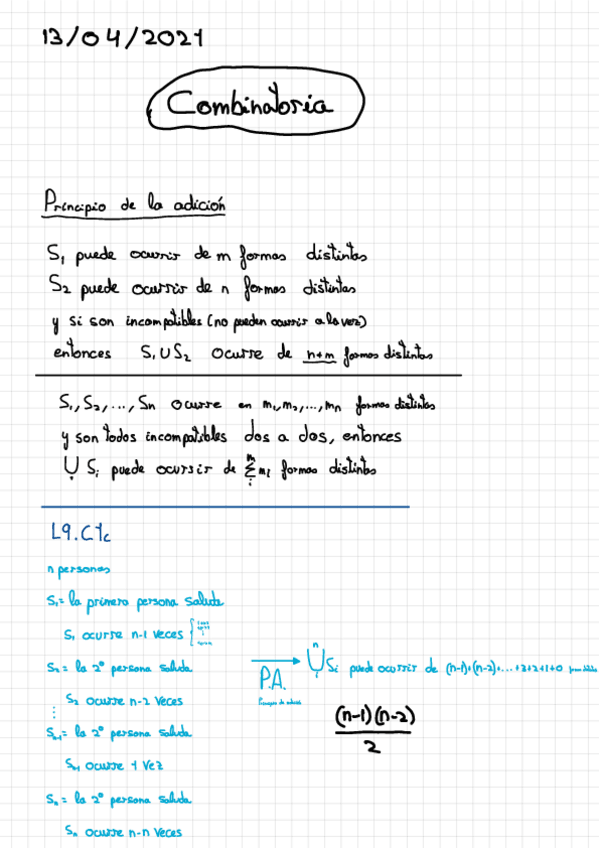 13/04/2021
Combinatoria
Principio de la adición
S₁ puede ocurrir de m formas distintas
S₂ puede ocurrir de n formas distintas
y si son incompatibles (no pueden ocurrir a la vez)
entonces S₁ ∪ S₂ ocurre de n+m formas distintas
S₁, S₂, ..., Sn ocurre en m₁, m₂, ..., mn formas distintas
y son todos incompatibles dos a dos, entonces
⋃ Sᵢ puede ocurrir de ∑ mᵢ formas distintas
L9.C1c
n personas
S₁ = la primera persona saluda
S₁ ocurre n-1 veces
S₂ = la 2º persona saluda
S₂ ocurre n-2 veces
⋮
Sₙ₋₁ = la 2º persona saluda
Sₙ₋₁ ocurre 1 vez
Sₙ = la 2º persona saluda
Sₙ ocurre n-n veces
P.A.
Principio de adición
⋃ Sᵢ puede ocurrir de (n-1)+(n-2)+...+3+2+1+0
(n-1)(n-2)
2